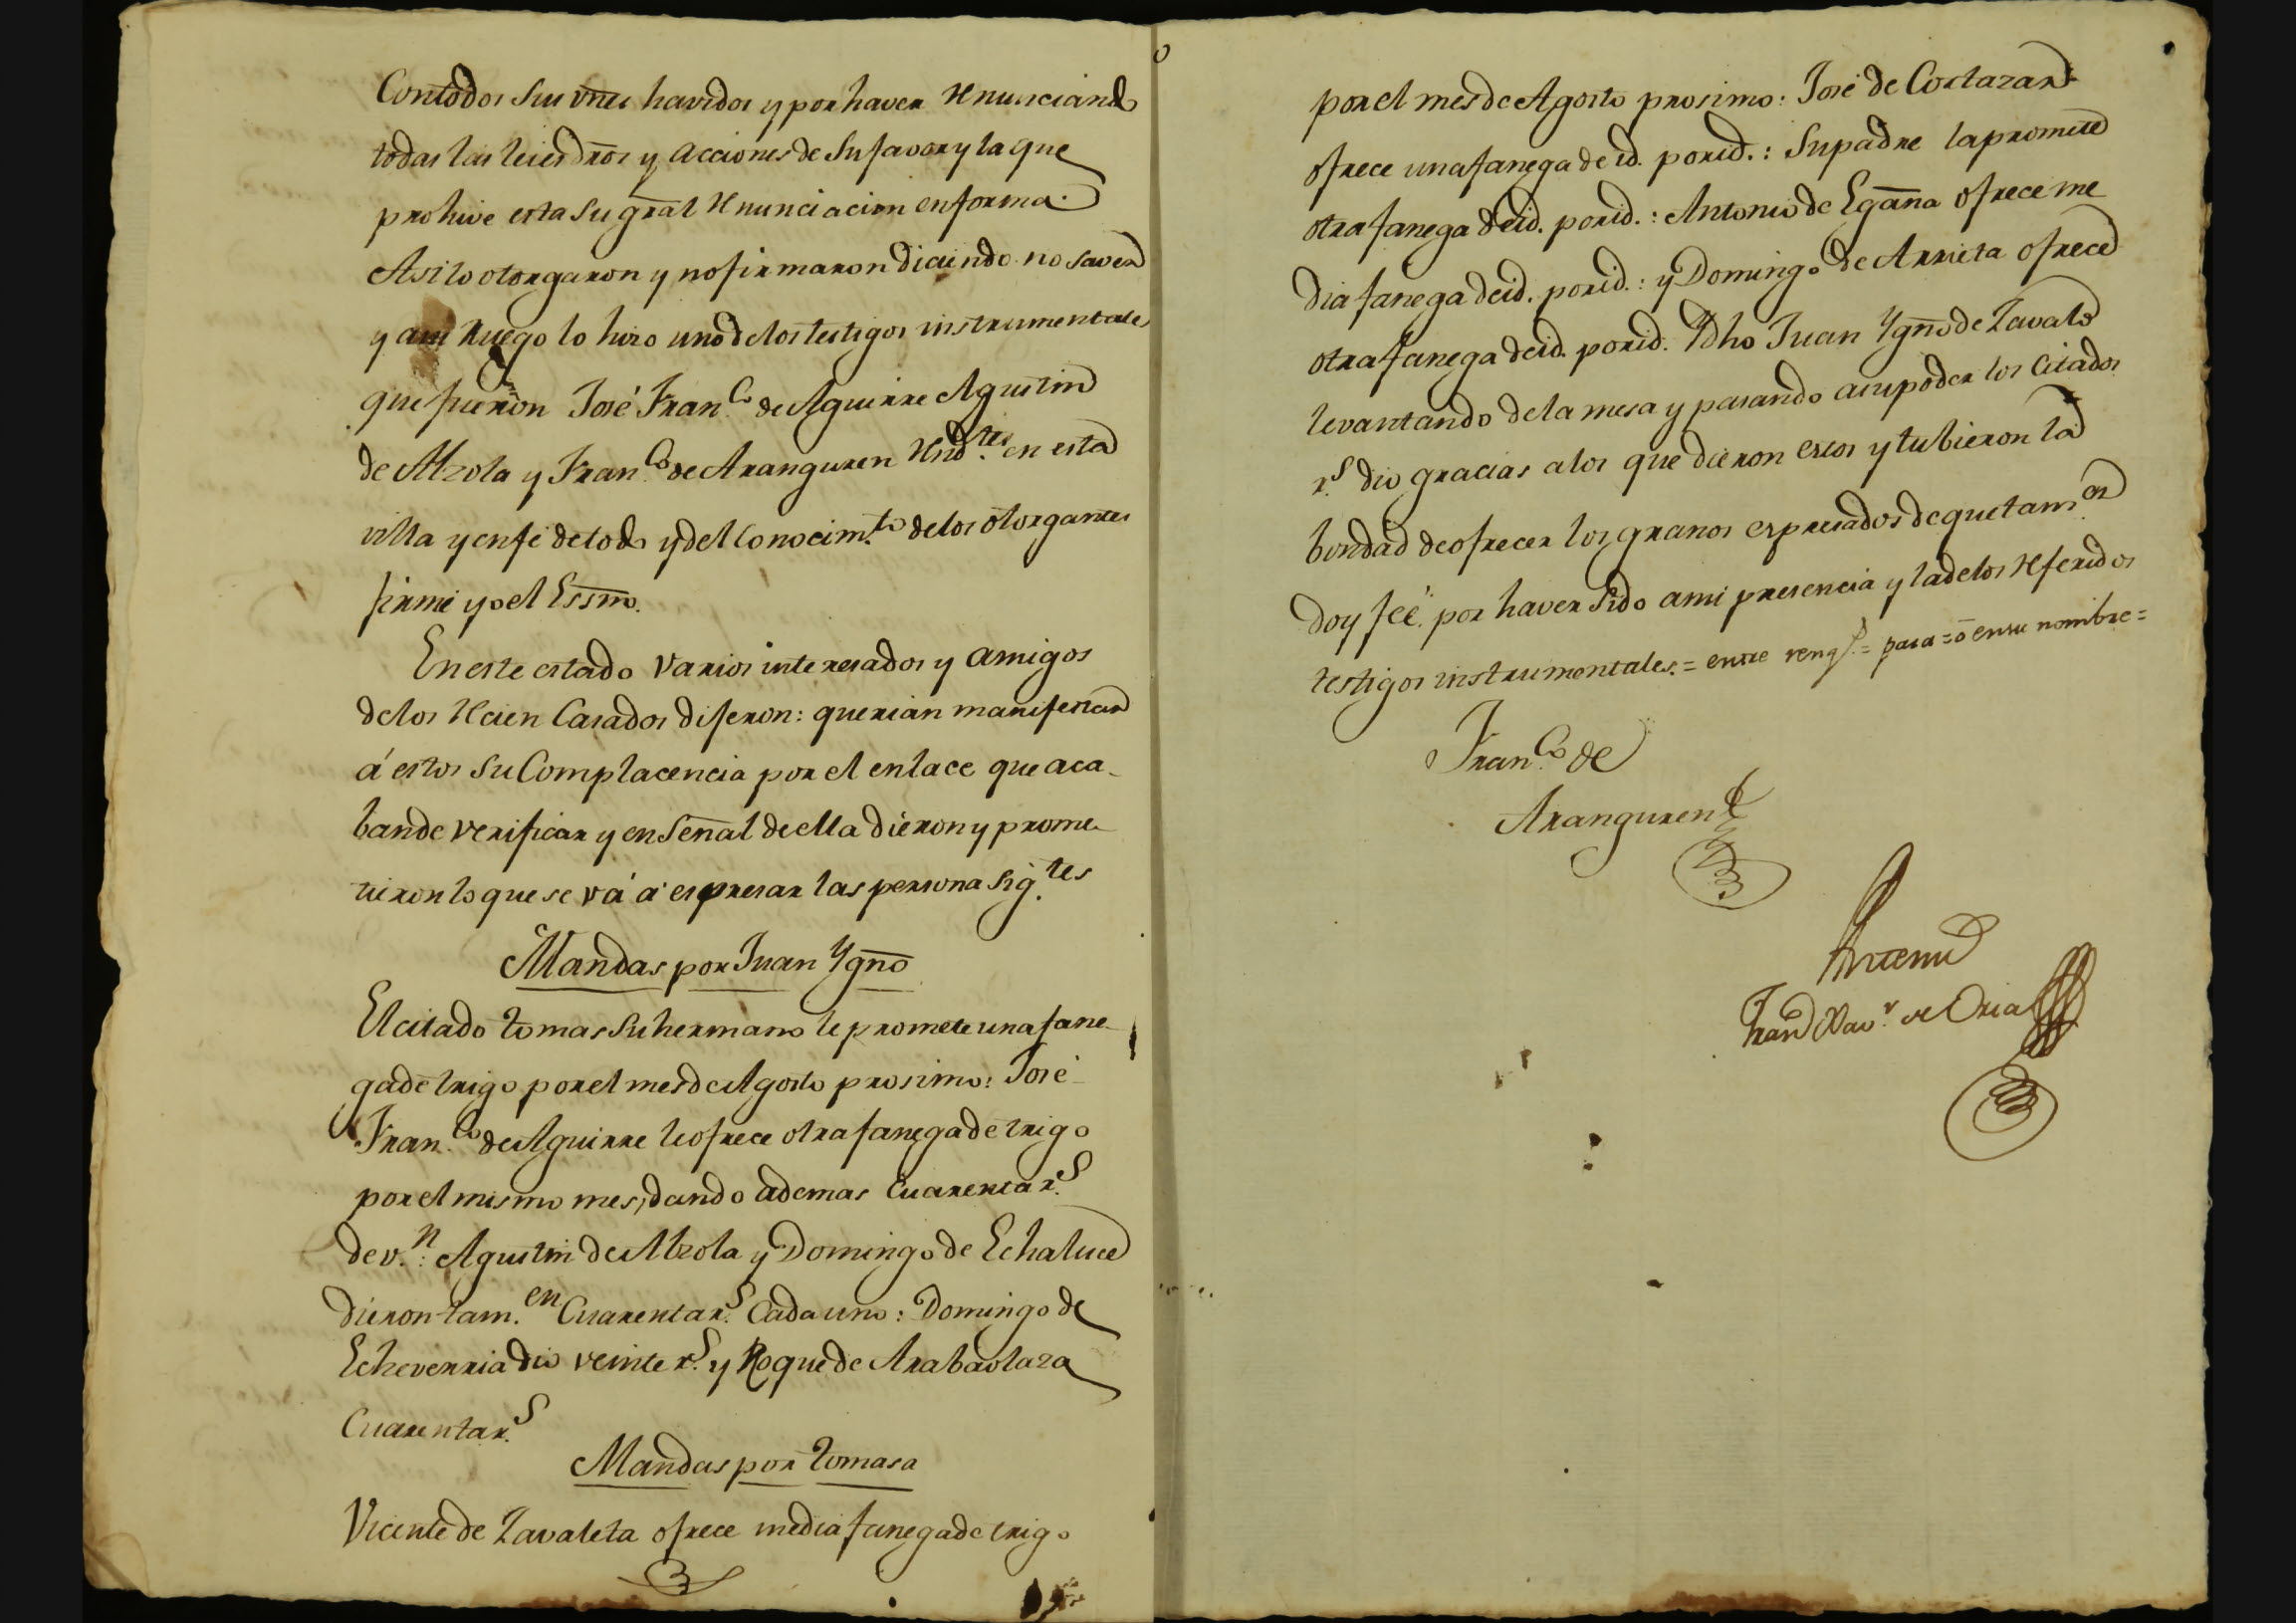 Con todos sus vnes havidos y por haver renunciando
todas las leies dros y acciones de su favor y la que
prohive esta su gral renunciacion en forma.
Asi lo otorgaron y no firmaron diciendo no saver
y a mi ruego lo hizo uno de los testigos instrumentales
que fueron José Fran.co de Aguirre Agustin
de Alzola y Fran.co de Aranguren resid.tes en esta
villa y en fé de todo y del conocim.to de los otorgantes
firmé yo el Essmo.
En este estado varios interesados y amigos
de los recien casados digeron: querian manifestar
á estos su complacencia por el enlace que aca-
ban de verificar y en señal de ella dieron y prome-
tieron lo que se vá á espresar las persona sig.tes
Mandas por Juan Ygno
El citado Tomas su hermano le promete una fane-
ga de trigo por el mes de Agosto prosimo: José
Fran.co de Aguirre le ofrece otra fanega de trigo
por el mismo mes, dando ademas cuarenta r.s
de v.n: Agustin de Alzola y Domingo de Echaluce
dieron tam.en cuarenta r.s cada uno: Domingo de
Echeverria dio veinte r.s y Roque de Arabaolaza
cuarenta r.s
Mandas por Tomasa
Vicente de Zavaleta ofrece media fanega de trigo
por el mes de Agosto prosimo: José de Cortazar
ofrece una fanega de id. por id.: Su padre la promete
otra fanega de id. por id.: Antonio de Egaña ofrece me
dia fanega de id. por id.: y Domingo de Arrieta ofrece
otra fanega de id. por id. Y dho Juan Ygno de Zavala
levantando de la mesa y pasando a su poder los citados
r.s dio gracias a los que dieron estos y tubieron la
bondad de ofrecer los granos espresados de que tam.en
doy feé por haver sido a mi presencia y la de los referidos
testigos instrumentales. = entre reng.s = para = ó en su nombre =
Fran.co de
Aranguren
Ante mi
Fran Xav.r de Oria